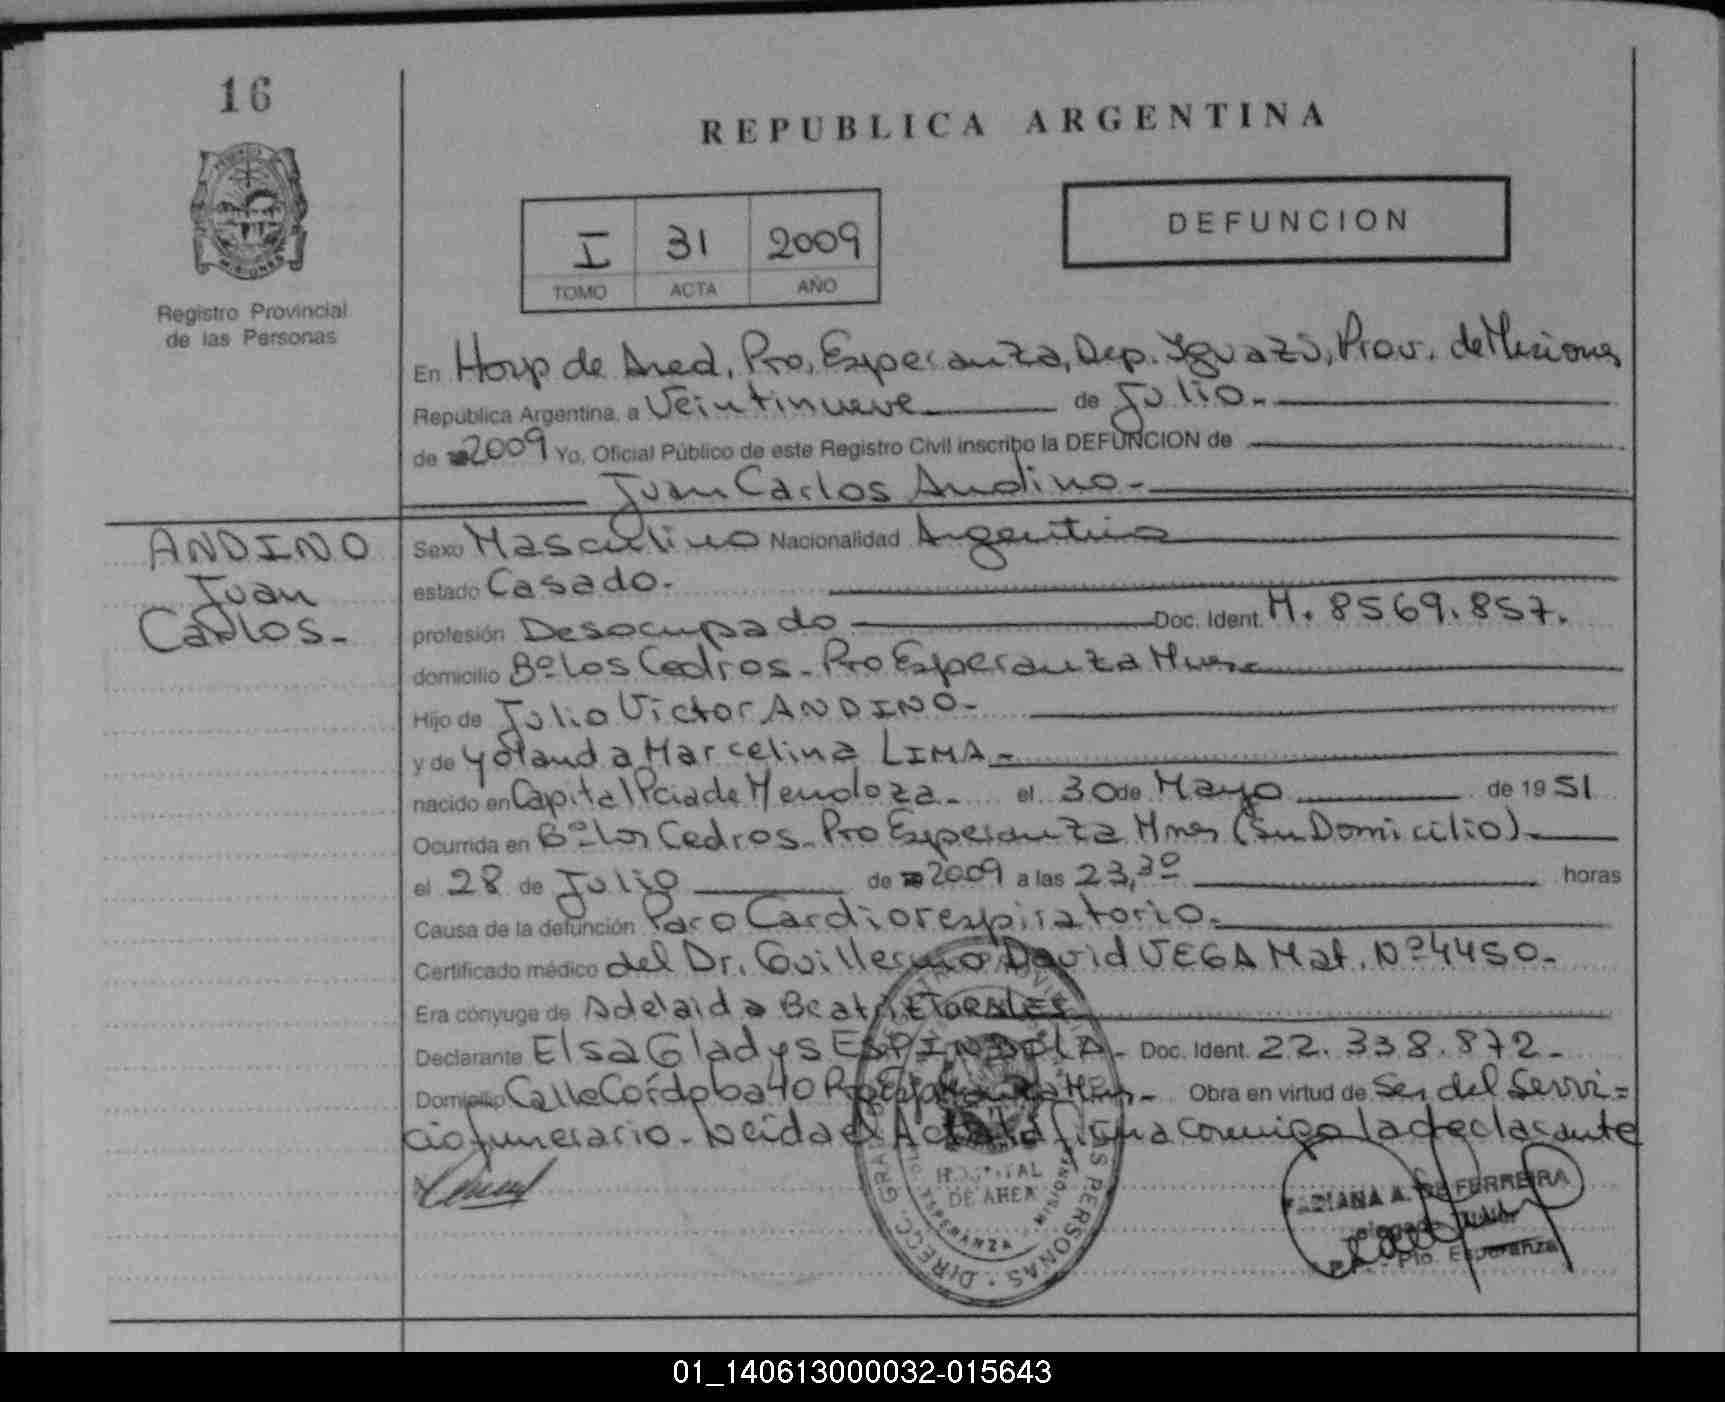 16
REPUBLICA ARGENTINA
DEFUNCION
I 31 2009
TOMO ACTA AÑO
MISIONES
Registro Provincial
de las Personas
En Hosp de Area, Pto, Esperanza, Dep. Iguazú, Prov. de Misiones
Republica Argentina, a Veintinueve de Julio.-
de 2009 Yo, Oficial Público de este Registro Civil inscribo la DEFUNCION de
Juan Carlos Andino.-
ANDINO
Juan
Carlos.-
Sexo Masculino Nacionalidad Argentina
estado Casado.-
profesión Desocupado Doc. Ident. M. 8569.857.
domicilio Bº Los Cedros - Pto Esperanza Mnes
Hijo de Julio Victor ANDINO.-
y de Yolanda Marcelina LIMA.-
nacido en Capital Pcia de Mendoza.- el 30 de Mayo de 19 51
Ocurrida en Bº Los Cedros - Pto Esperanza Mnes (Su Domicilio).-
el 28 de Julio de 2009 a las 23,30 horas
Causa de la defunción Paro Cardiorespiratorio.-
Certificado médico del Dr. Guillermo David VEGA Mat. Nº 4450.-
Era cónyuge de Adelaida Beatriz
Declarante Elsa Gladys ESPINDOLA.- Doc. Ident. 22.338.872.-
Domicilio Calle Córdoba 40 Pto Esperanza Mnes.- Obra en virtud de Ser del Servi=
cio funerario. Leida el Acta la firma conmigo la declarante
HOSPITAL
DE AREA
ESPERANZA MISIONES
DIRECC. GRAL. PERSONAS
FABIANA A. DE FERREIRA
Pto. Esperanza
01_140613000032-015643